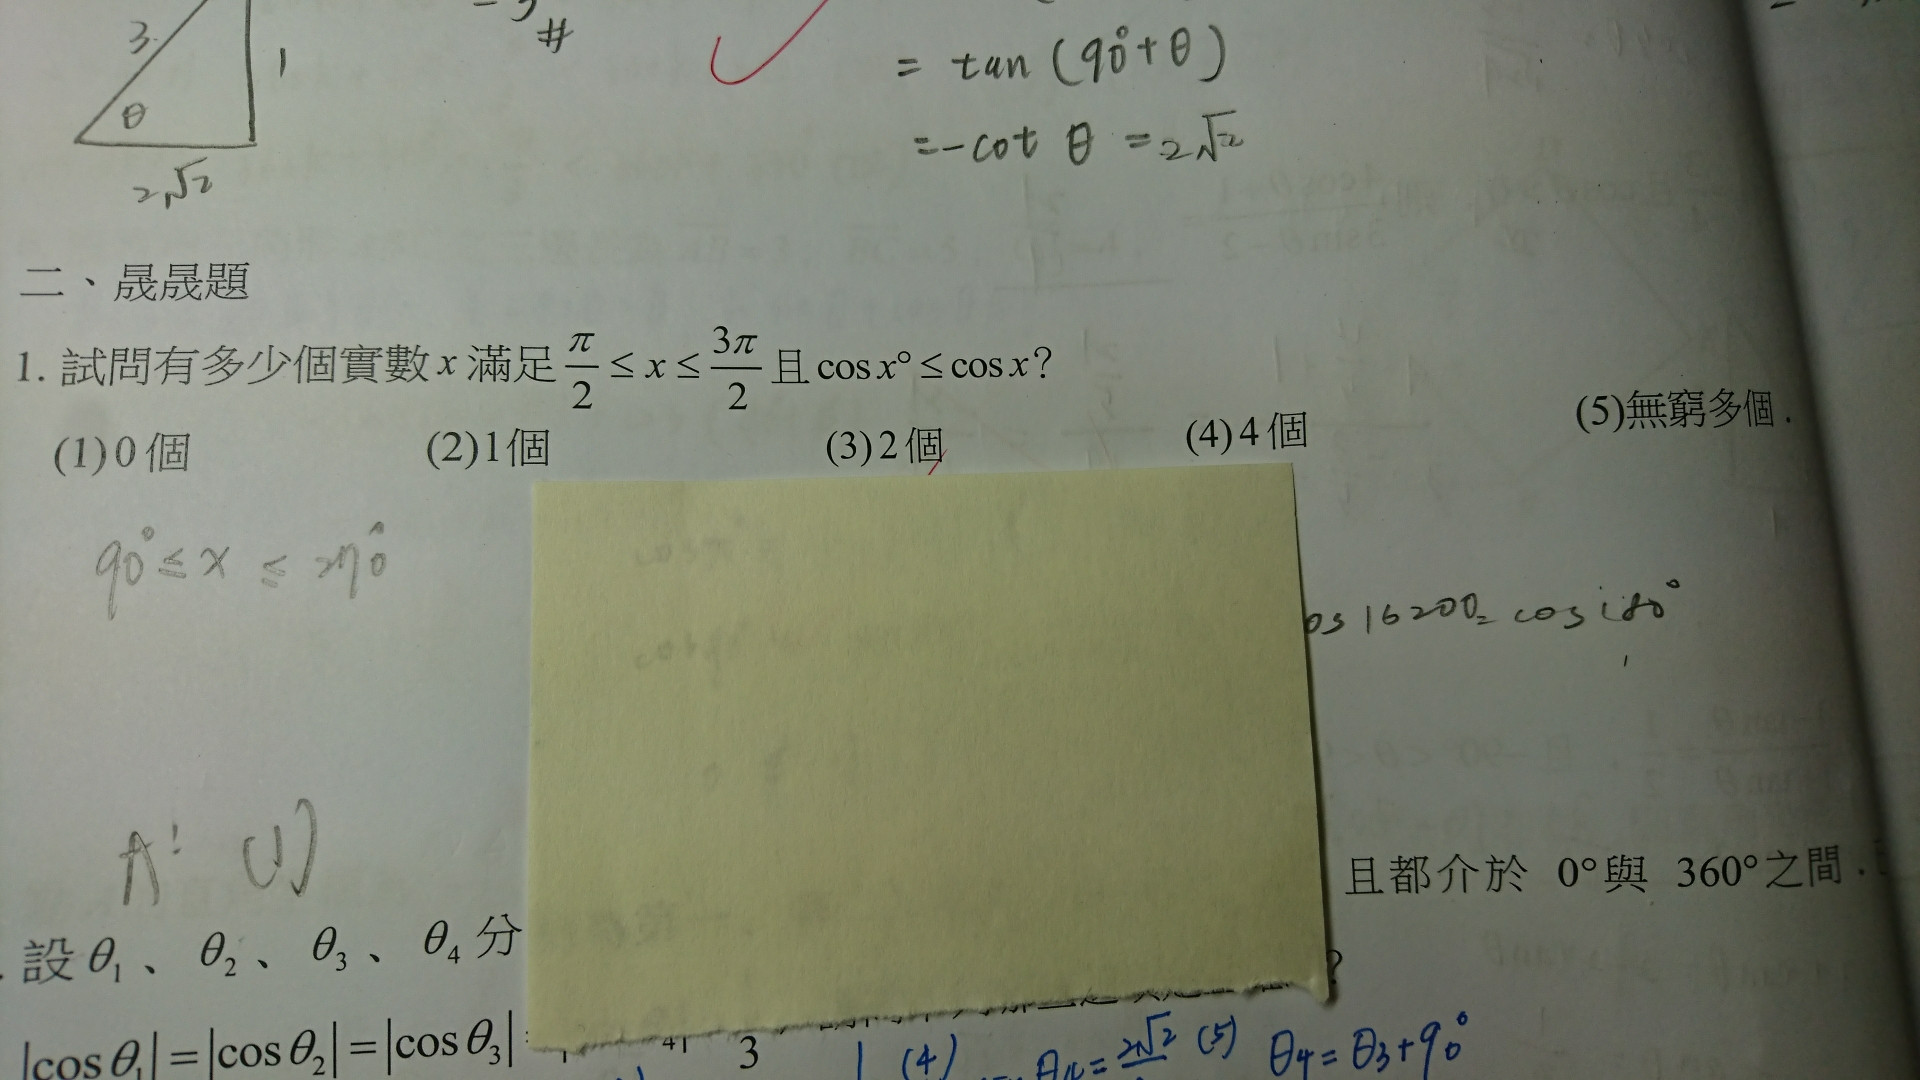 3
1
θ
2√2
#
= tan (90°+θ)
=-cot θ = 2√2
二、晟晟題
1. 試問有多少個實數 x 滿足 π/2 ≤ x ≤ 3π/2 且 cos x° ≤ cos x?
(1) 0 個 (2) 1個 (3) 2 個 (4) 4 個 (5)無窮多個.
90° ≤ x ≤ 270°
os 16200= cos 180°
A: (1)
且都介於 0°與 360°之間.
設 θ₁、θ₂、θ₃、θ₄ 分
?
|cos θ₁| = |cos θ₂| = |cos θ₃|
3
(4)
2√2
(5) θ4 = θ3+90°